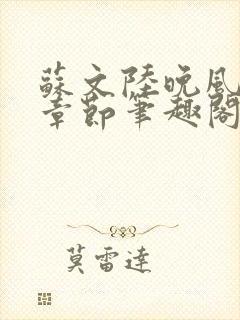 蘇文陸晚風
章節筆趣閣
莫雷達